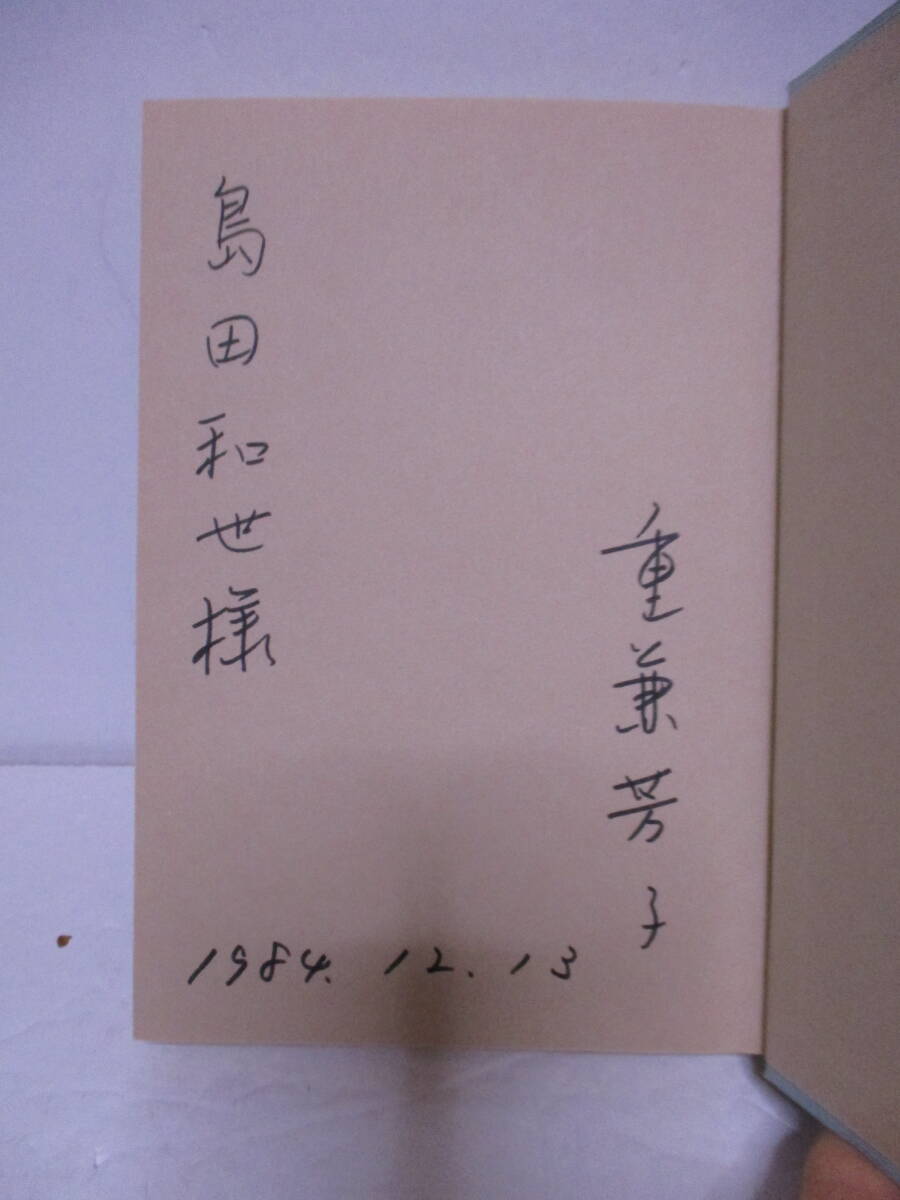 重兼芳子
島田和世様
1984. 12. 13